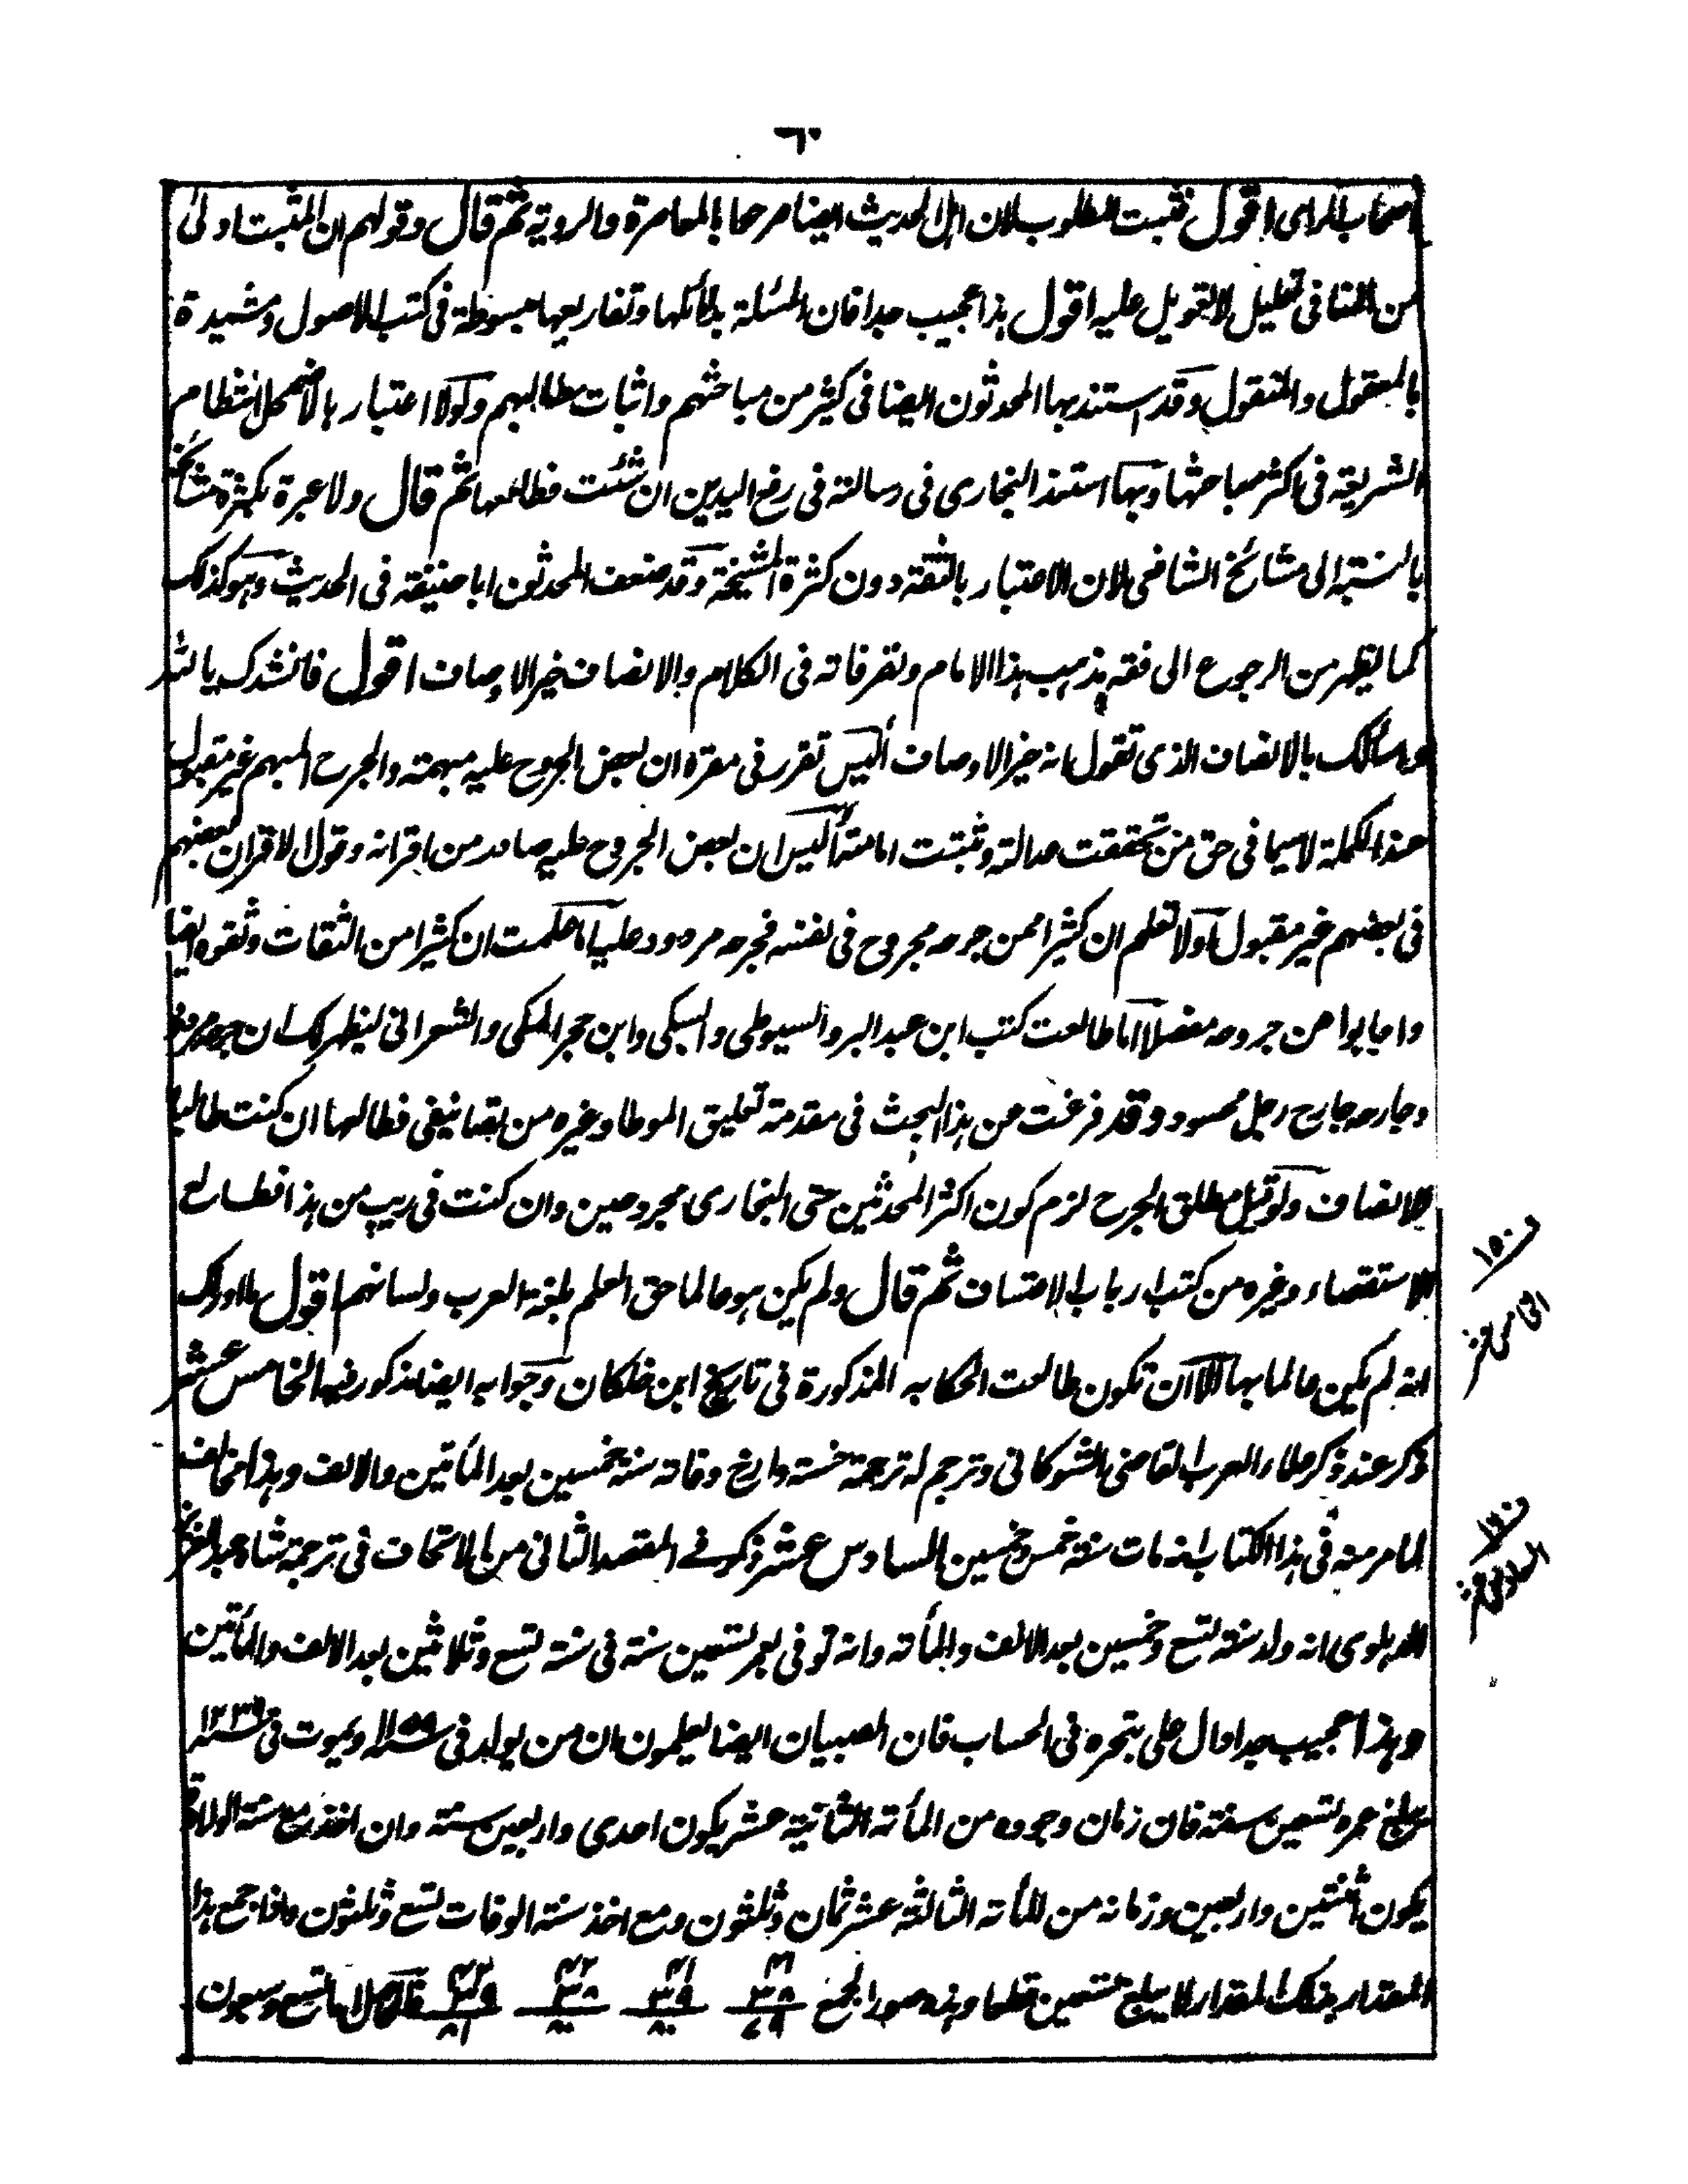 ٦٠
اصحاب الرای اقول فثبت المطلوب لان اهل الحدیث ایضا صرحا بالمعاصرة والرویة ثم قال وقولهم ان المثبت اولی
من النافی تعلیل لا تعویل علیه اقول هذا عجیب جدا فان المسئلة بدلائلها وتفاریعها مبسوطة فی کتب الاصول ومشیدة
بالمعقول والمنقول وقد استند بها المحدثون ایضا فی کثیر من مباحثهم واثبات مطالبهم ولولا اعتبارها لاضمحل انتظام
الشریعة فی اکثر مباحثها وبها استند البخاری فی رسالته فی رفع الیدین ان شئت فطالعها ثم قال ولا عبرة بکثرة مشائخ
بالنسبة الی مشائخ الشافعی لان الاعتبار بالثقة دون کثرة المشیخة وقد ضعف المحدثون ابا حنیفة فی الحدیث وهو کذلک
کما یظهر من الرجوع الی فقه مذهب هذا الامام وتصرفاته فی الکلام والانصاف خیر الاوصاف اقول فانشدک بالله
واسئلک بالانصاف الذی تقول انه خیر الاوصاف ألیس تقرر فی مقره ان بعض الجروح علیه مبهمة والجرح المبهم غیر مقبول
عند الکملة لا سیما فی حق من تحققت عدالته وثبتت امامته ألیس ان بعض الجروح علیه صادر من اقرانه وقول الاقران بعضهم
فی بعضهم غیر مقبول أولا تعلم ان کثیرا ممن جرحه مجروح فی نفسه فجرحه مردود علیه أما علمت ان کثیرا من الثقات وثقوه ایضا
واجابوا عن جروحه مفصلا أما طالعت کتب ابن عبد البر والسیوطی والسبکی وابن حجر المکی والشعرانی لیظهر لک ان جرحه مردود
وجارحه جارح رجل محسود وقد فرغت عن هذا البحث فی مقدمة تعلیق الموطا وغیره من تصانیفی فطالعها ان کنت طالبا
للانصاف ولو قبل مطلق الجرح لزم کون اکثر المحدثین حتی البخاری مجروحین وان کنت فی ریب من هذا فطالع
الاستقصاء وغیره من کتب ارباب الاعتساف ثم قال ولم یکن هو عالما حق العلم بلغة العرب ولسانهم اقول ما ادراک
انه لم یکن عالما بها الا ان تکون طالعت الحکایه المذکورة فی تاریخ ابن خلکان وجوابه ایضا مذکور فیه الخامس عشر
ذکر عند ذکر علماء العرب القاضی الشوکانی وترجم له ترجمة حسنة وارخ وفاته سنة خمسین بعد المأتین والالف وهذا مخالف
لما مر منه فی هذا الکتاب انه مات سنة خمس وخمسین السادس عشر ذکر فی المقصد الثانی من الاتحاف فی ترجمة شاه عبد العزیز
الدهلوی انه ولد سنة تسع وخمسین بعد الالف والمأته وانه توفی بعمر تسعین سنة فی سنة تسع وثلاثین بعد الالف والمأتین
وهذا عجیب جدا دال علی تبحره فی الحساب فان الصبیان ایضا یعلمون ان من یولد فی سنة ١١٥٩ ویموت فی سنة ١٢٣٩
لا یبلغ عمره تسعین سنة فان زمان وجوده من المأته الثانیة عشر یکون احدی واربعین سنة وان اخذ مع سنة الولادة
یکون ثنتین واربعین وزمانه من المأته الثالثة عشر ثمان وثلثون ومع اخذ سنة الوفات تسع وثلثون فاذا جمع هذا
المقدار بذلک المقدار لا یبلغ تسعین قطعا وهذه صور الجمع